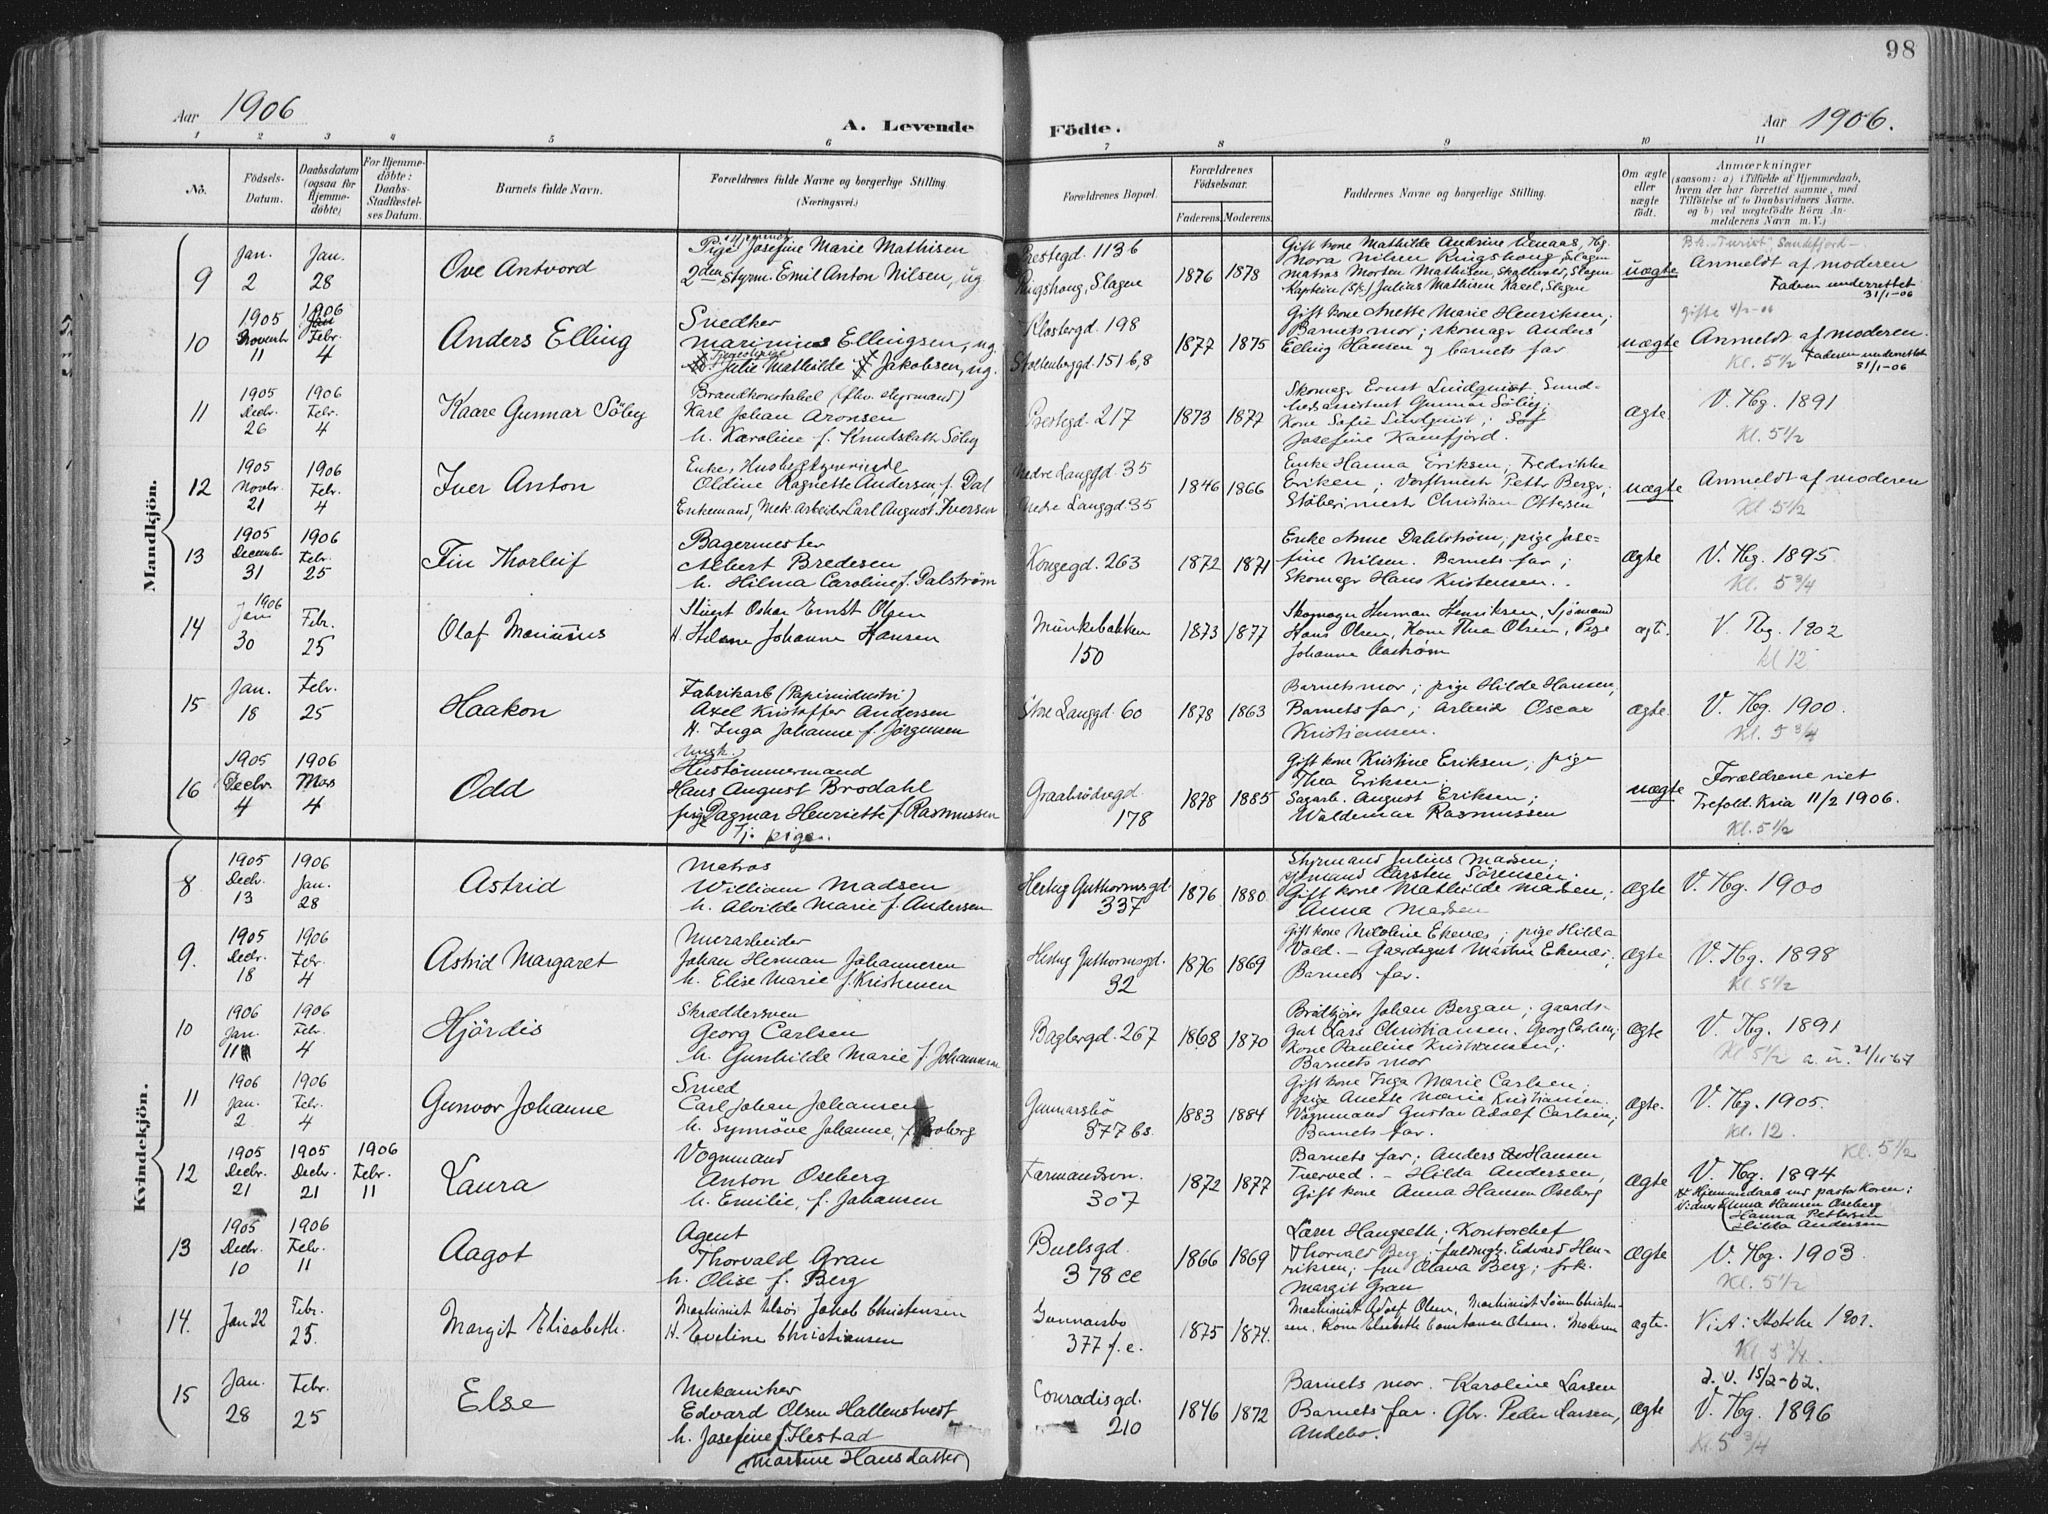 98
Aar 1906
A. Levende
Födte.
Aar 1906.
1 2 3 4 5 6 7 8 9 10 11
No.
Födsels-
Datum.
Daabsdatum
(ogsaa for
Hjemme-
döbte)
For Hjemme-
döbte:
Daabs-
Stadfæstel-
ses Datum.
Barnets fulde Navn.
Forældrenes fulde Navne og borgerlige Stilling.
(Næringsvei.)
Forældrenes Bopæl.
Forældrenes
Födselsaar.
Faderens. Moderens.
Faddernes Navne og borgerlige Stilling.
Om ægte
eller
uægte
födt.
Anmærkninger
(saasom: a) i Tilfælde af Hjemmedaab,
hvem der har forrettet samme, med
Tilföielse af to Daabsvidners Navne.
og b) ved uægtefödte Börn An-
melderens Navn m. V.)
Mandkjön.
9
Jan.
2
Jan.
28
Ove Antvord
Pige Josefine Marie Mathisen
2den styrm. Emil Anton Nilsen, ug.
Prestegd. 1136
Ringshoug, Slagen
1876 1878
Gift kone Mathilde Andrine Venaas, Tbg.
Nora Nilsen Ringshoug, Slagen
Matros Morten Mathisen, Skallevær, Slagen
Kaptein (Sk.) Julius Mathisen Kasel, Slagen
uægte
Bk. "Turist", Sandefjord
Anmeldt af moderen
Faderen underrettet
31/1-06
10
1905
Novembr
11
1906
Febr.
4
Anders Elling
Snedker
Marinius Ellingsen, ug.
Tjenestepige
Julie Mathilde Jakobsen, ug.
Klostergd. 198
Stoltenberggd. 151 b, 8
1877 1875
Gift kone Anette Marie Henriksen;
Barnets mor; skomagr Anders
Elling Hansen og barnets far
uægte
Anmeldt af moderen.
Kl. 5 1/2
Faderen underrettet
31/1-06
11
1905
Decbr.
26
1906
Febr.
4
Kaare Gunnar Söley
Brandkonstabel (fhv. styrmand)
Karl Johan Aronsen
h. Karoline f. Knudsdatter Söley
Prestegd. 217
1873 1877
Skomagr Ernst Lindquist, Sund-
hedsassistent Gunnar Söley;
Kone Sofie Lindquist;
Josefine Kamfjord.
Ægte
V. Tbg. 1891
Kl. 5 1/2
12
1905
Novbr.
21
1906
Febr.
4
Iver Anton
Enke, Husbestyrerinde
Oldine Ragnette Andersen, f. Dal
Enkemand, Mek. Arbeider Carl August Iversen
Nedre Langgd. 35
Nedre Langgd. 35
1846 1866
Enke Hanna Eriksen, Fredrikke
Eriksen; Værftmester Petter Berg;
Stöberimester Christian Ottersen
uægte
Anmeldt af moderen
Kl. 5 1/2
13
1905
Decembr
31
1906
Febr.
25
Fin Thorleif
Bagermester
Albert Bredesen
h. Hilma Caroline f. Dalström
Kongegd. 263
1872 1871
Enke Anne Dahlström, pige Jose-
fine Nilsen. Barnets far;
Skomagr Hans Kristensen.
Ægte
V. Tbg. 1895
Kl. 5 3/4
14
1906
Jan
30
Febr.
25
Olaf Marinius
Stuert Oskar Ernst Olsen
H. Helene Johanne Hansen
Munkebakken
150
1873 1877
Skomager Herman Henriksen, Sjømand
Hans Olsen, Kone Thea Olsen, Pige
Johanne Aaström
ægte.
V. Tbg. 1902
Kl 12
15
Jan.
18
Febr.
25
Haakon
Fabrikarb (Papirindustri)
Axel Kristoffer Andersen
H. Inga Johanne f. Jörgensen
Store Langgd. 60
1878 1863
Barnets mor; pige Hilde Hansen,
Barnets far; Arbeid Oscar
Kristiansen.
Ægte.
V. Tbg. 1900.
Kl. 5 3/4
16
1905
Decbr.
4
1906
Mars
4
Odd
Ungk.
Hustömmermand
Hans August Brodahl
pige Dagmar Henriette f. Rasmussen
Tj. pige.
Graabrödregd
178
1878 1885
Gift kone Kristine Eriksen; pige
Thea Eriksen;
Sagarb. August Eriksen;
Waldemar Rasmussen
uægte
Forældrene viet
Trefold. Kria 11/2 1906.
Kl. 5 1/2
Kvindekjön.
8
1905
Decbr.
13
1906
Jan.
28
Astrid
Matros
William Madsen
h. Alvilde Marie f. Andersen
Hertug Guthormsgd.
337
1876 1880
Styrmand Julius Madsen;
Carsten Sörensen;
Gift kone Mathilde Madsen,
Anna Madsen
Ægte
V. Tbg. 1900
9.
1905
Decbr.
18
1906
Febr.
4
Astrid Margaret
Murarbeider
Johan Herman Johannesen
h. Elise Marie f. Kristensen
Hertug Guthormsgd.
32
1876 1869
Gift kone Nicoline Ekenæs; pige Hilda
Vold. - Gaardsgut Martin Ekenæs,
Barnets far.
Ægte
V. Tbg. 1898
Kl 5 1/2
10
1906
Jan.
11
1906
Febr.
4
Hjördis
Skræddersven
Georg Carlsen
h. Gunhilde Marie f. Johannesen
Baglergd. 267
1868 1870
Johan Bergan; gaards-
gut Lars Christiansen. Georg Carlsen;
Kone Pauline Kristiansen;
Barnets mor
Ægte
V. Tbg. 1891
Kl 5 1/2
11
1906
Jan.
2
1906
Febr.
4
Gunvor Johanne
Smed
Carl Johan Johansen
h. Synnöve Johanne, f. Broberg
Gunnarsbö
377 bs.
1883 1884
Gift kone Inga Marie Carlsen;
pige Anette Marie Kristiansen.
Vognmand Gustav Adolf Carlsen;
Barnets far.
Ægte.
V. Tbg. 1905.
Kl. 12.
12
1905
Decbr.
21
1905
Decbr.
21
1906
Febr.
11
Laura
Vognmand
Anton Oseberg
h. Emilie, f. Johansen
Farmandsvn.
307
1872 1877
Barnets far; Anders Hansen
Tverved. - Hilda Andersen,
Gift kone Anna Hansen Oseberg
Ægte
Kl. 5 1/2
V. Tbg. 1894
Hjemmedaab ved pastor Koren;
Vidner: Anna Hansen Oseberg
Hanna Pettersen
Hilda Andersen
13
1905
Decbr.
10
1906
Febr.
11
Aagot
Agent
Thorvald Gran
h. Olise f. Berg
Buelsgd.
378 cc
1866 1869
Lærer Haugseth; Kontorchef
Thorvald Berg; fuldmgt. Edvard Hen-
riksen; fru Olava Berg; frk.
Margit Gran
Ægte
V. Tbg. 1903.
Kl. 5 1/2
14.
Jan 22
Febr.
25.
Margit Elisabeth.
Maskinist Jakob Christensen
H. Eveline Christiansen
Gunnarsbo
377 f. e.
1875 1874.
Maskinist Adolf Olsen, Maskinist Sören Christen-
sen. Kone Elisabeth Constance Olsen. Moderen
ægte.
Viet: Stokke 1901.
Kl. 5 3/4.
15
Jan.
28
Febr.
25
Else
Mekaniker
Edvard Olsen Hallenstvet
h. Josefine f. Hestad
(Martine Hansdatter)
Conradisgd.
210
1846 1872
Barnets mor. Karoline Larsen
Barnets far. Gbr. Peder Larsen,
Andebo.
Ægte
a. u. 15/2-62.
V. Tbg. 1896
Kl. 5 3/4